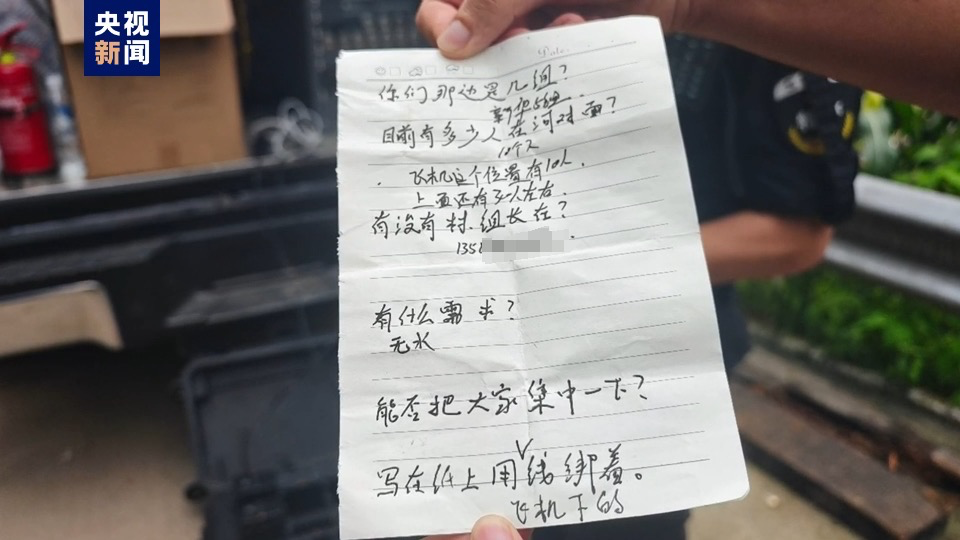 央视
新闻
Date.
你们那边是几组？
新华5组
目前有多少人在河对面？
10个人
飞机这个位置有10人.
上面还有 人左右.
有没有村.组长在？
135
有什么需求？
无水
能否把大家集中一下？
写在纸上用∨线绑着。
飞机下的